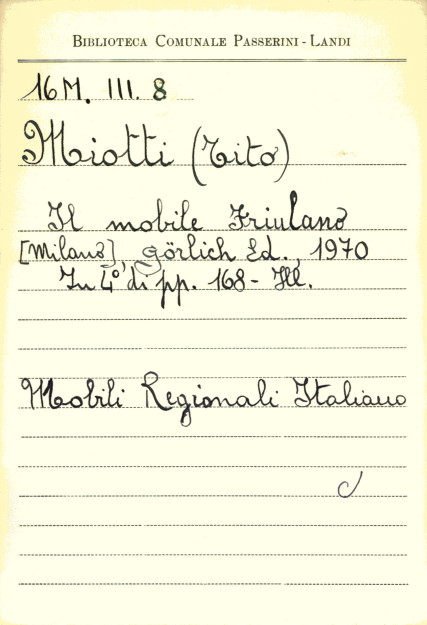 BIBLIOTECA COMUNALE PASSERINI - LANDI
16 M. III. 8
Miotti (Tito)
Il mobile Friulano
[Milano], görlich Ed., 1970
In 4° di pp. 168 - Ill.
Mobili Regionali Italiano